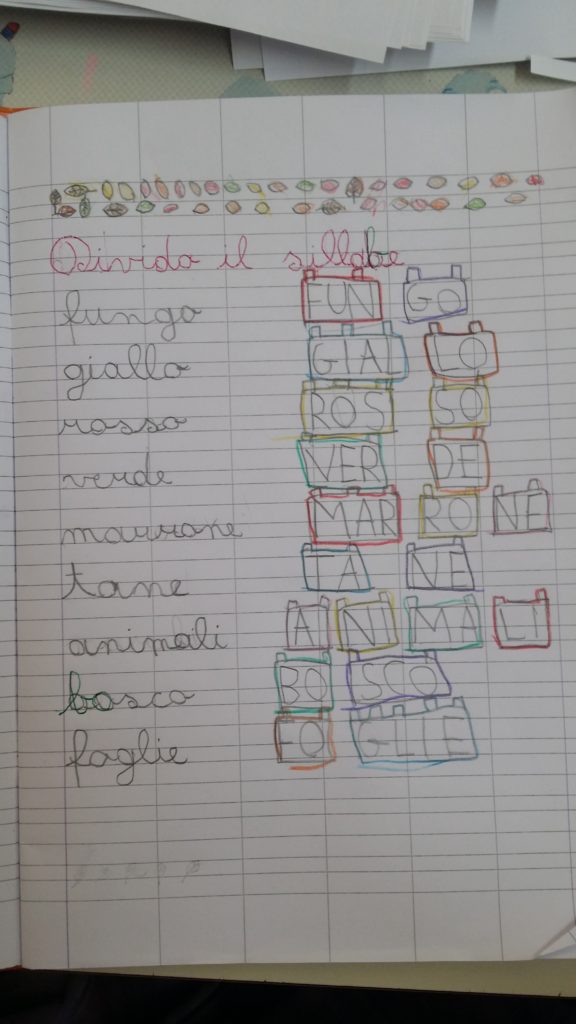 Divido il sillabe
fungo FUN GO
giallo GIAL LO
rosso ROS SO
verde VER DE
marrone MAR RO NE
tane TA NE
animali A NI MA LI
bosco BO SCO
foglie FO GLIE